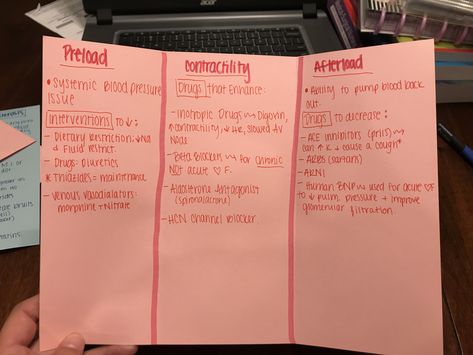 acer
Preload
• Systemic Blood pressure
issue
Interventions to ↓:
- Dietary Restriction: ↓Na
& Fluid restrict.
- Drugs: diuretics
* Thiazides = maintenance
- Venous vasodialators:
morphine + Nitrate
Contractility
Drugs that Enhance:
- Inotropic Drugs → Digoxin,
↑ contractility, ↓ HR, Slowed AV
Node
- Beta Blockers → for chronic
NOT acute ♡ F.
- Aldosterone Antagonist
(spironalacrone)
- HCN Channel Blocker.
Afterload
• Ability to pump blood back
out.
Drugs to decrease:
- ACE Inhibitors (prils) →
can ↑ K + cause a cough*
- ARBS (sartans)
- ARNI
- Human BNP → used for acute ♡F
to ↓ pulm. pressure + improve
glomerular filtration.